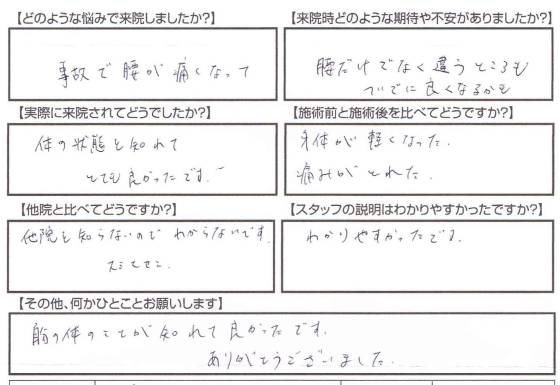 【どのような悩みで来院しましたか?】
事故で腰が痛くなって
【来院時どのような期待や不安がありましたか?】
腰だけでなく違うところも
ついでに良くなるかも
【実際に来院されてどうでしたか?】
体の状態を知れて
とても良かったです。
【施術前と施術後を比べてどうですか?】
身体が軽くなった。
痛みがとれた。
【他院と比べてどうですか?】
他院を知らないのでわからないです。
【スタッフの説明はわかりやすかったですか?】
わかりやすかったです。
【その他、何かひとことお願いします】
の体のことが知れて良かったです。
ありがとうございました。